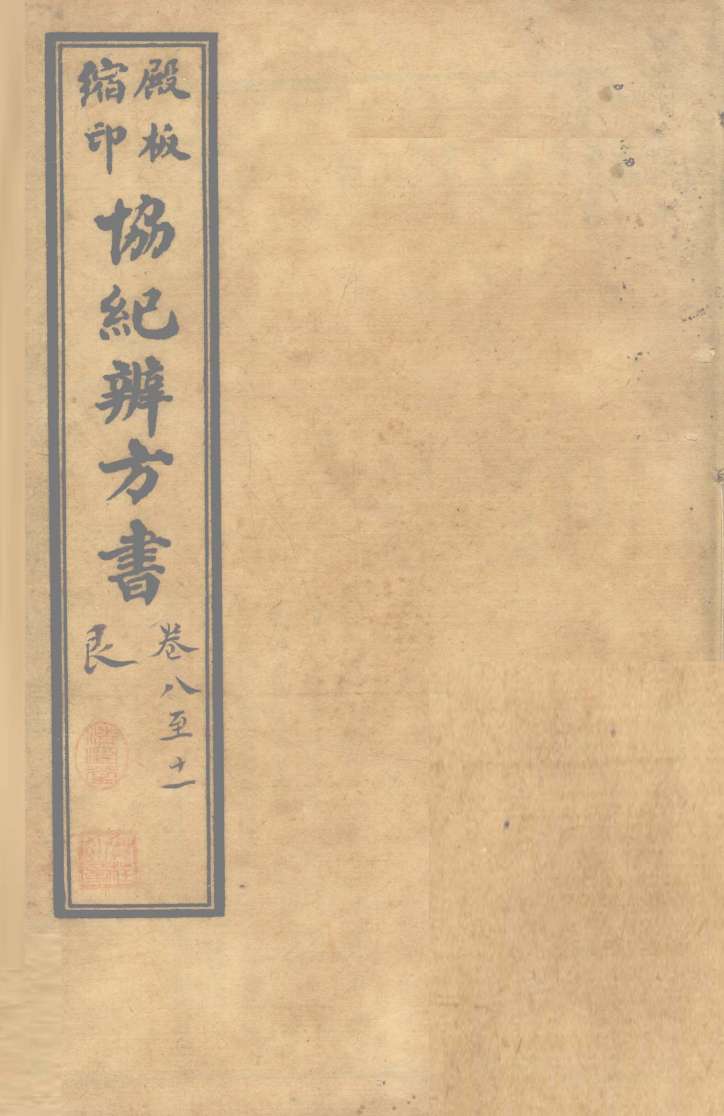 殿板
縮印
協紀辨方書
卷八至十一
艮